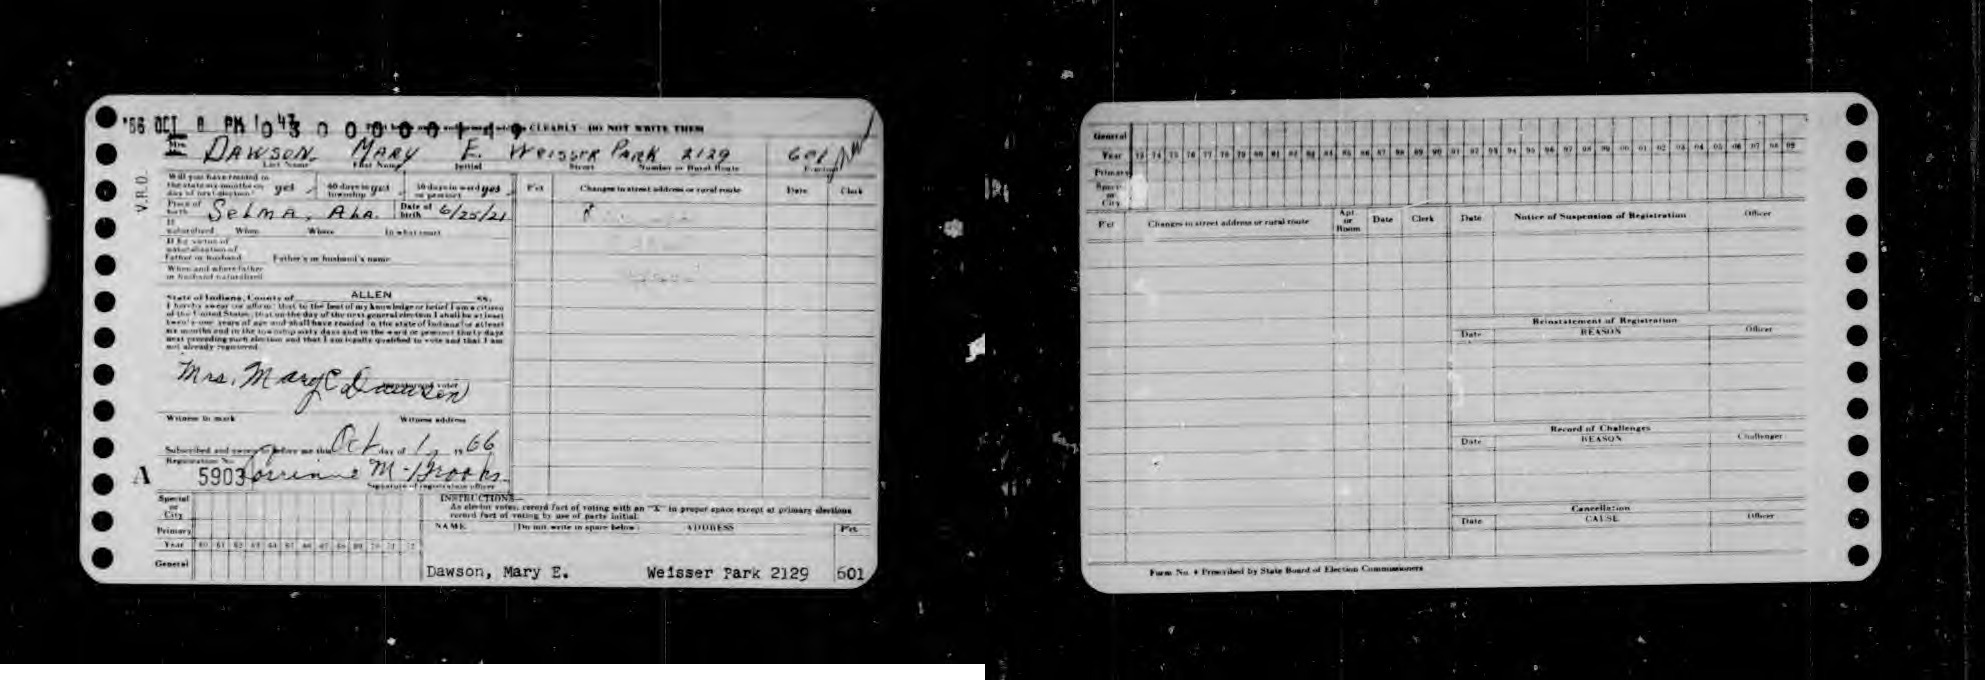 '66 OCT 8 PM 1 03 0 0 0 0 0 1 4 9 CLEARLY - DO NOT WRITE THEM
Mrs. DAWSON MARY E. WEISSER PARK 2129 601
Last Name First Name Initial Street Number or Rural Route Precinct
V.R.O.
Will you have resided in
the state six months on
day of next election? yes 60 days in township yes 30 days in ward or precinct yes
Pct Changes to street address or rural route Date Clerk
Place of birth SELMA, ALA. Date of birth 6/25/21
If naturalized When Where In what court
If by virtue of
naturalization of
Father or husband Father's or husband's name
When and where father
or husband naturalized
State of Indiana, County of ALLEN SS.
I hereby swear (or affirm) that to the best of my knowledge or belief I am a citizen
of the United States; that on the day of the next general election I shall be at least
twenty-one years of age and shall have resided in the state of Indiana for at least
six months and in the township sixty days and in the ward or precinct thirty days
next preceding such election and that I am legally qualified to vote and that I am
not already registered.
Mrs. Mary E Dawson
Signature of voter
Witness to mark Witness address
Subscribed and sworn to before me this Oct day of 1, 1966
Registration No.
A 5903 Corrinne M. Brooks
Signature of registration officer
Special
or
City
Primary
Year 60 61 62 63 64 65 66 67 68 69 70 71 72
General
INSTRUCTIONS—
As elector votes, record fact of voting with an "X" in proper space except at primary elections
record fact of voting by use of party initial.
NAME (Do not write in space below) ADDRESS Pct.
Dawson, Mary E. Weisser Park 2129 601
General
Year 73 74 75 76 77 78 79 80 81 82 83 84 85 86 87 88 89 90 91 92 93 94 95 96 97 98 99 00 01 02 03 04 05 06 07 08 09
Primary
Special
or
City
Pct Changes to street address or rural route Apt. or Room Date Clerk
Date Notice of Suspension of Registration Officer
Reinstatement of Registration
Date REASON Officer
Record of Challenges
Date REASON Challenger
Cancellation
Date CAUSE Officer
Form No. 4 Prescribed by State Board of Election Commissioners